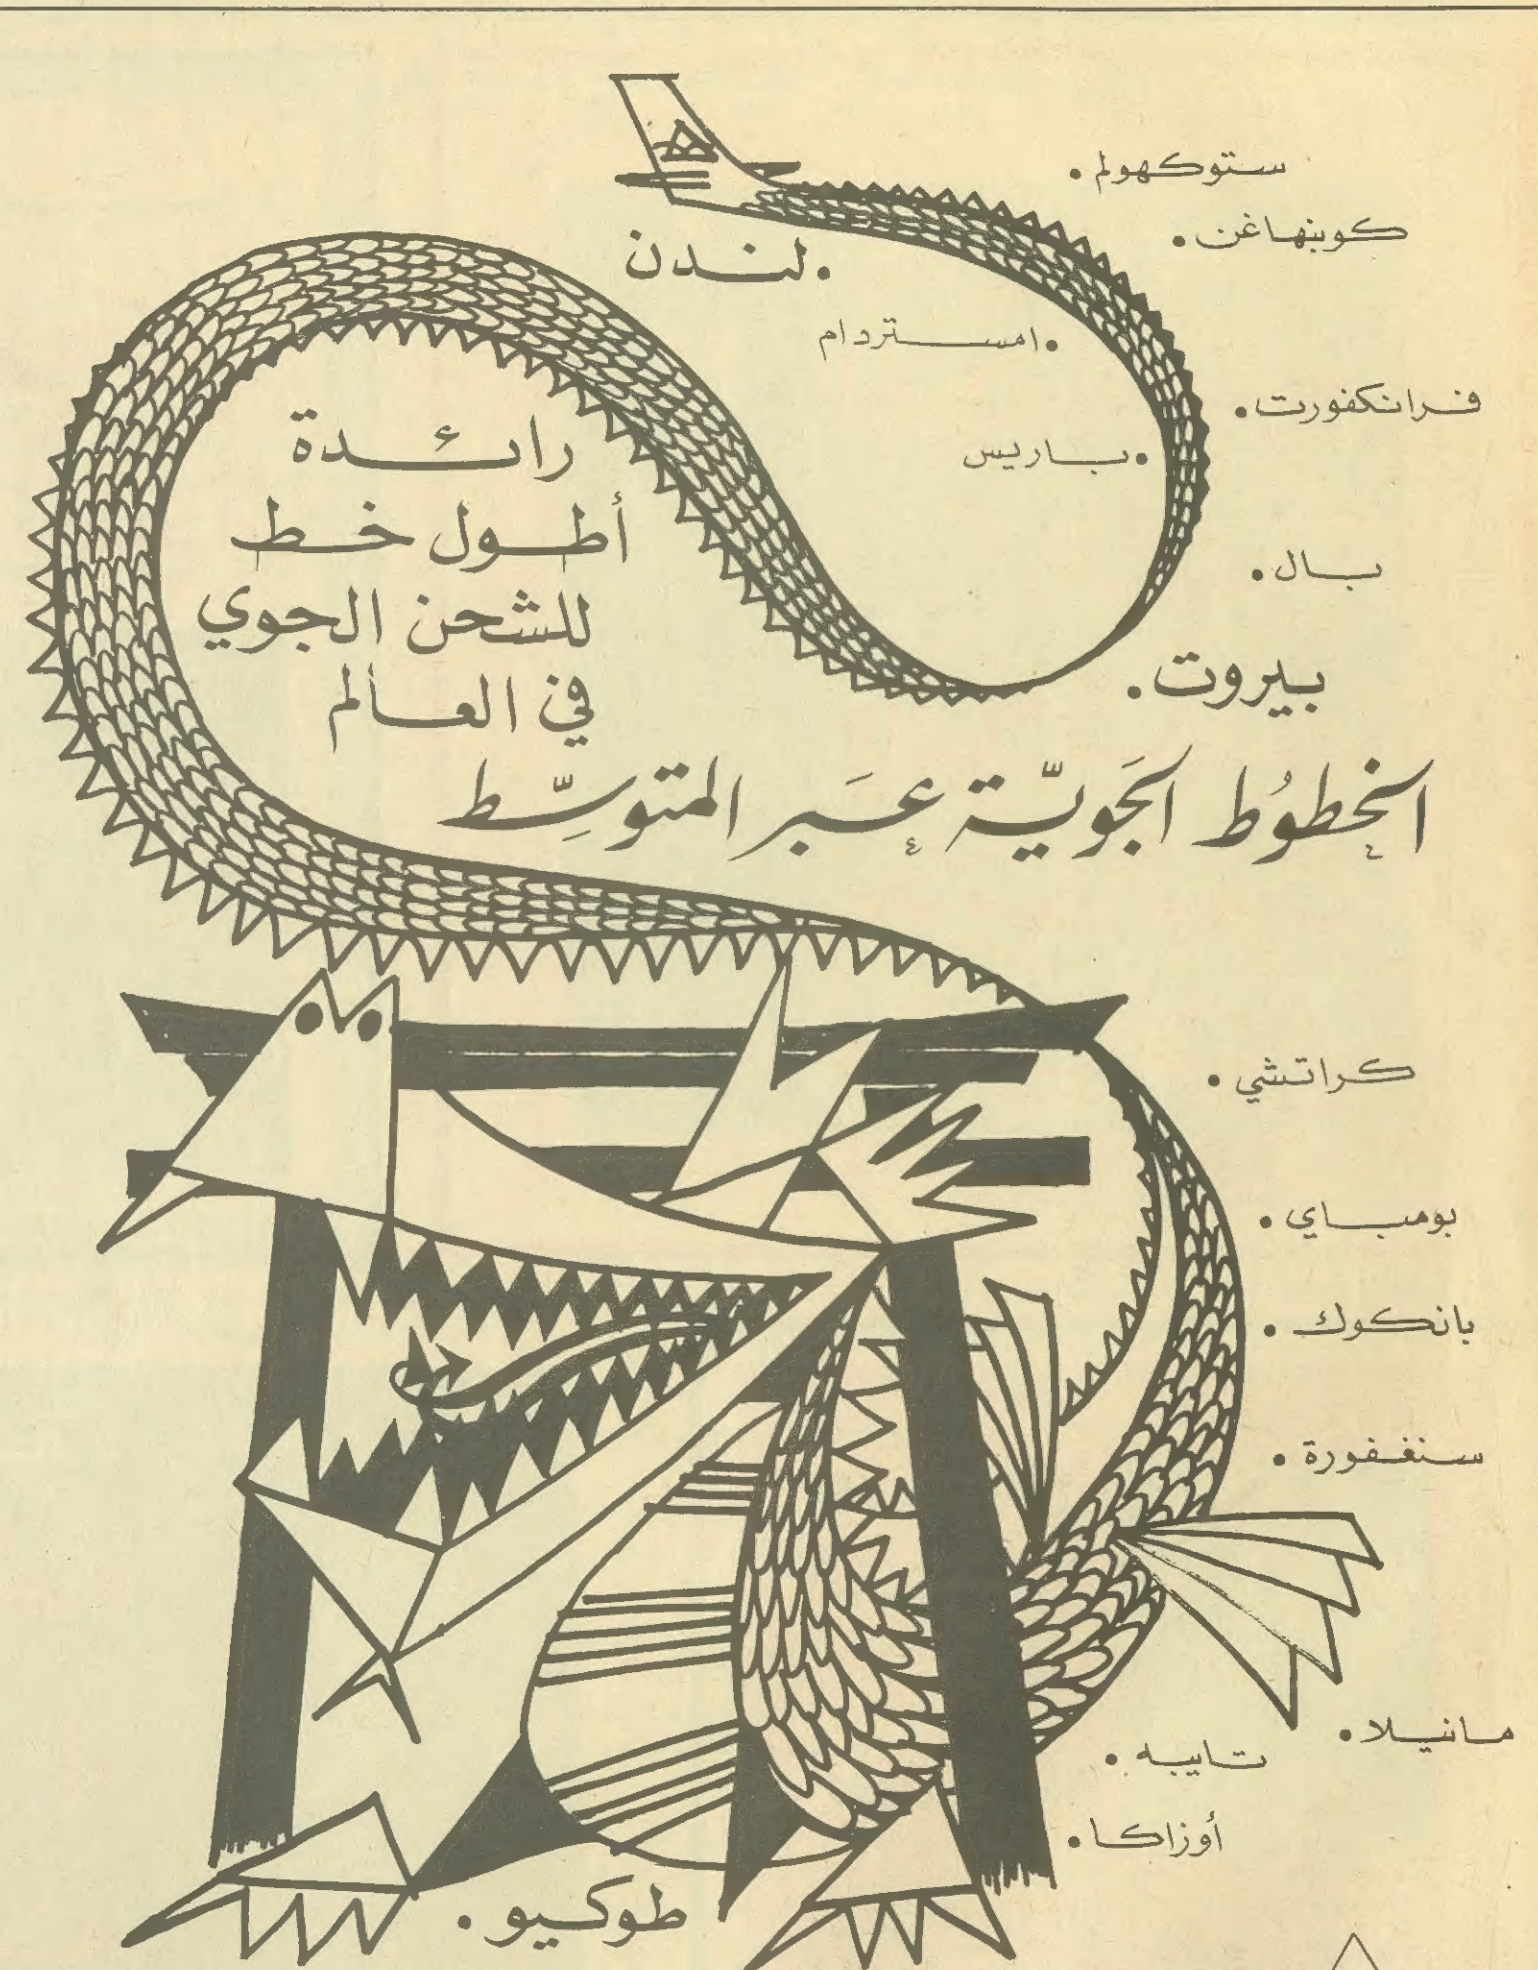 ستوكهولم.
كوبنهاغن.
.لندن
.امستردام
فرانكفورت.
.باريس
رائدة
أطول خط
للشحن الجوي
في العالم
بال.
بيروت.
الخطوُط الجَويّة عبَر المتوسِّط
كراتشي.
بومباي.
بانكوك.
سنغفورة.
مانيلا.
تايبه.
أوزاكا.
طوكيو.